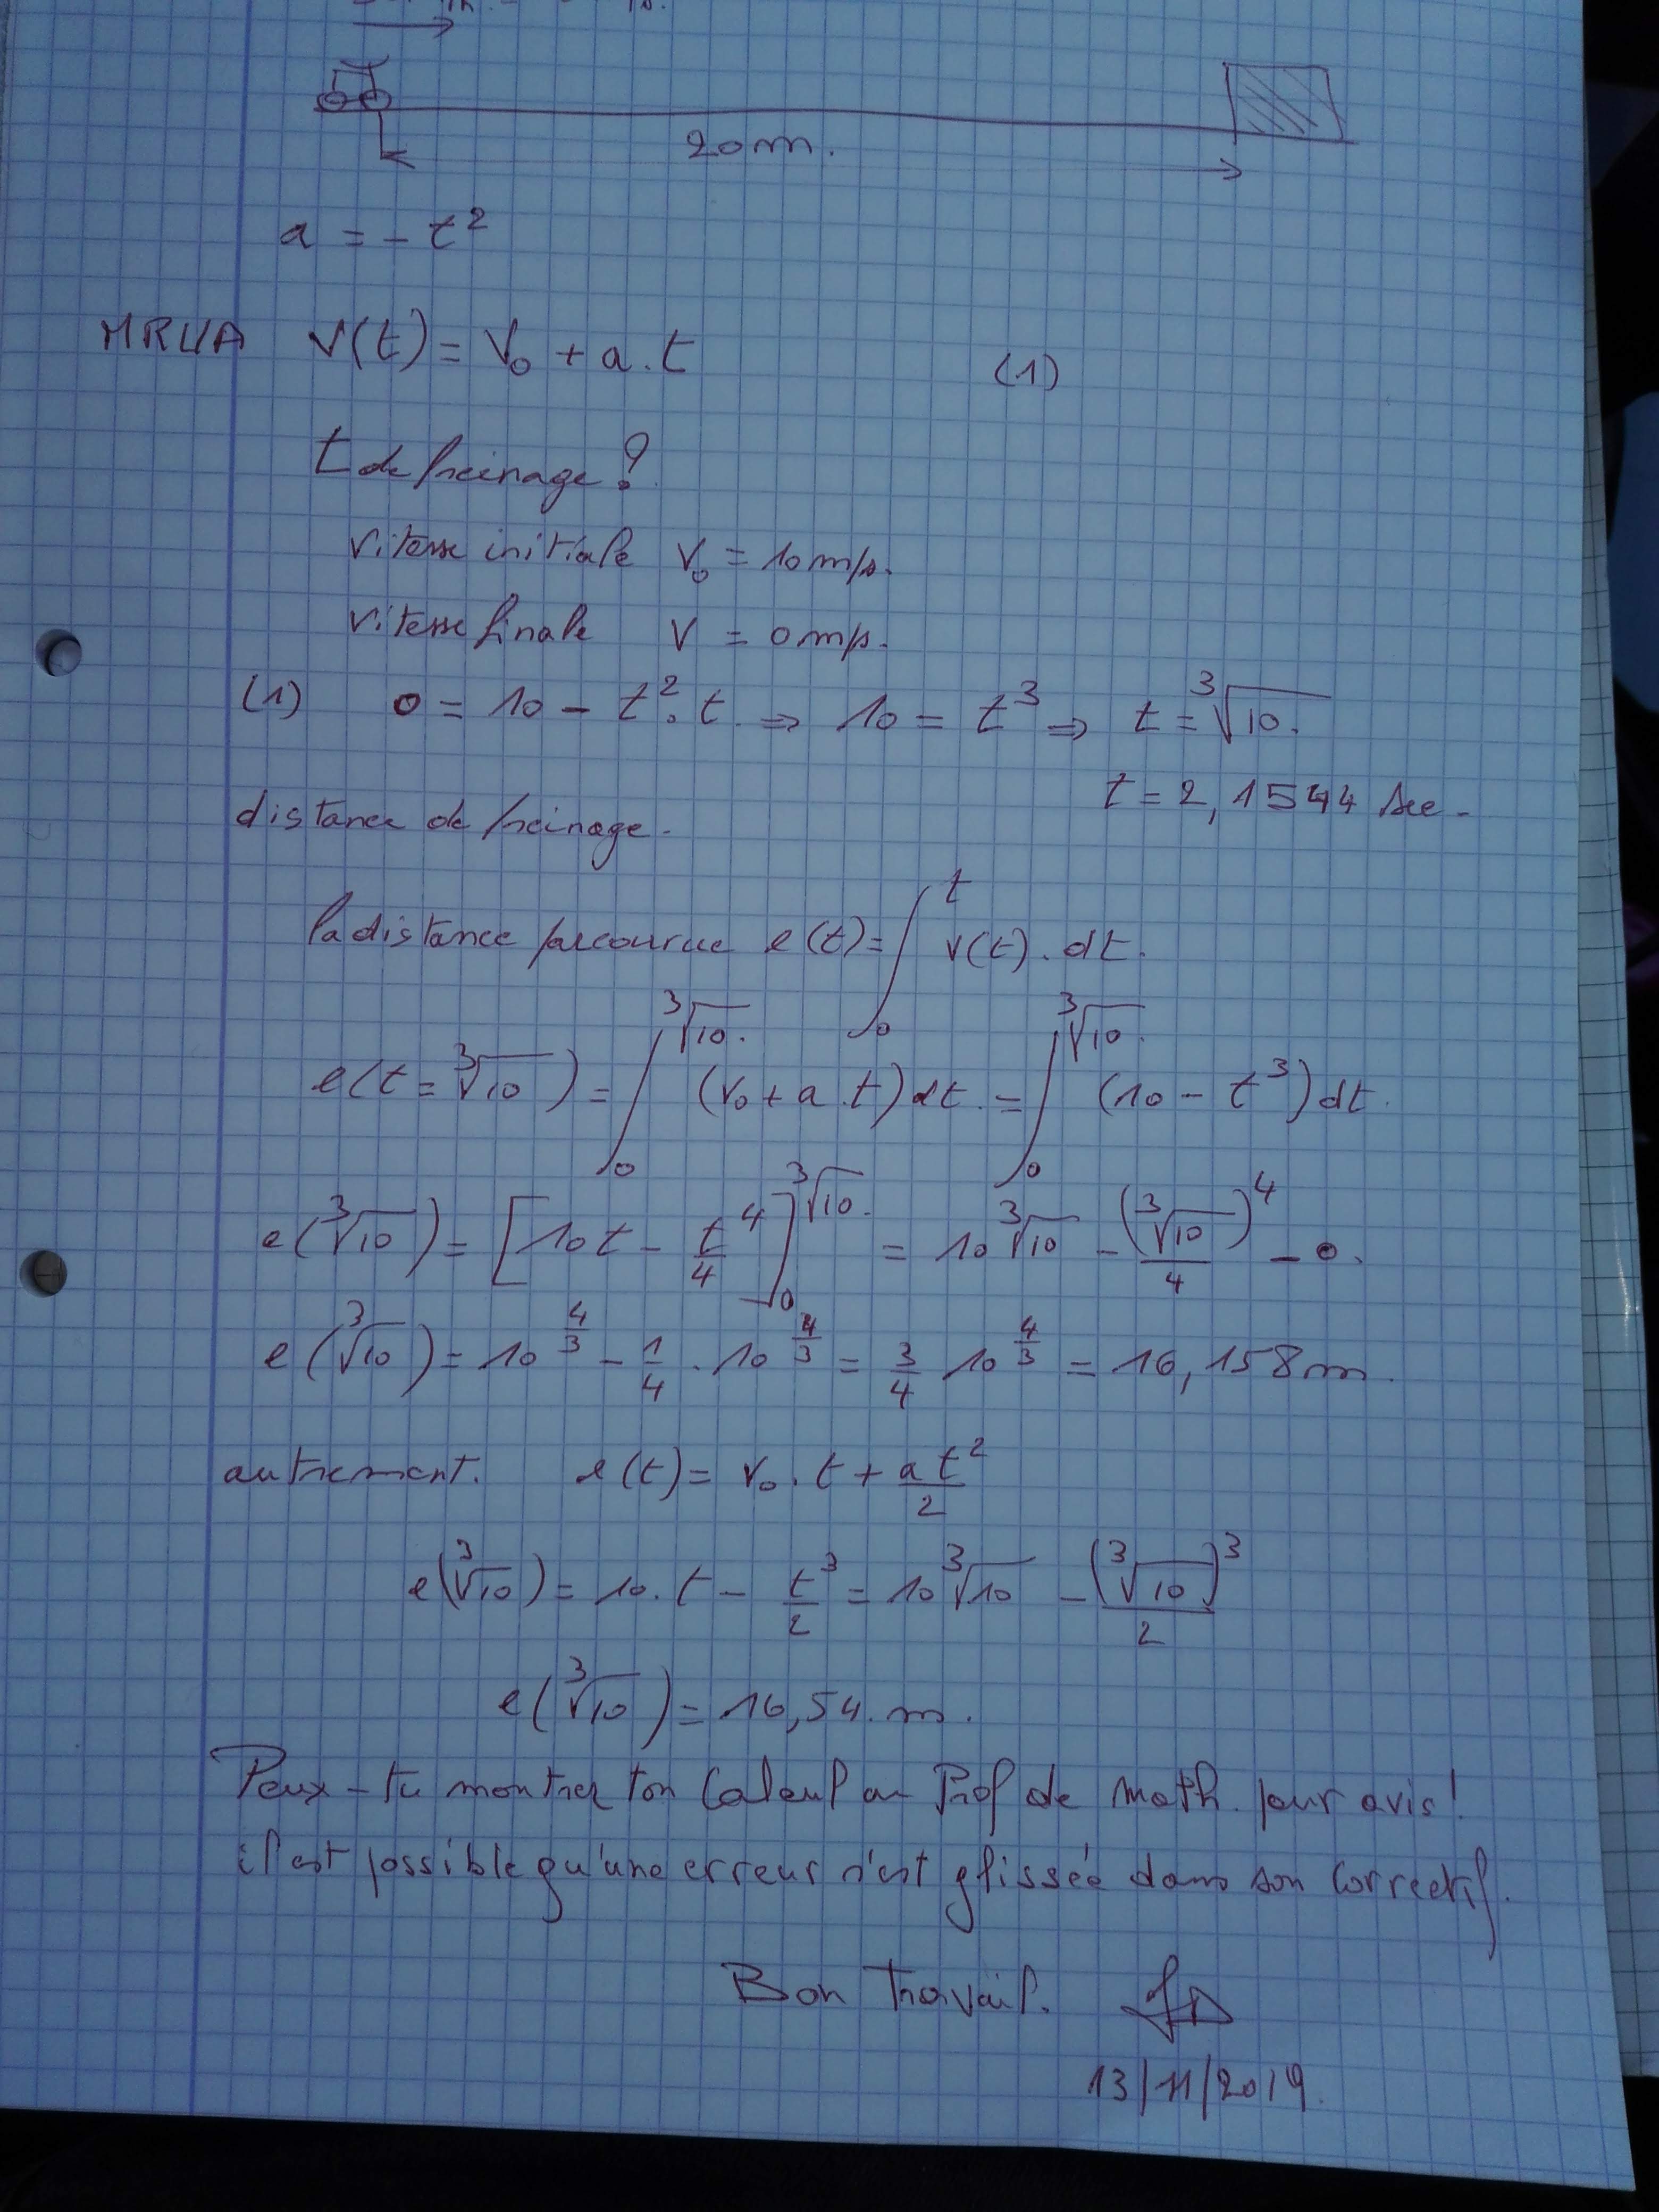 20m.
a = - t²
MRUA v(t) = v₀ + a.t (1)
t de freinage ?
vitesse initiale v₀ = 10 m/s.
vitesse finale v = 0 m/s.
(1) 0 = 10 - t².t. ⇒ 10 = t³ ⇒ t = ³√10.
t = 2,1544 sec.
distance de freinage.
la distance parcourue e(t) = ∫₀ᵗ v(t).dt.
e(t = ³√10) = ∫₀^³√10. (v₀ + a.t)dt. = ∫₀^³√10. (10 - t³)dt.
e(³√10) = [10t - t⁴/4]₀^³√10. = 10 ³√10 - (³√10)⁴/4 - 0.
e(³√10) = 10^4/3 - 1/4 . 10^4/3 = 3/4 10^4/3 = 16,158m.
autrement. e(t) = v₀.t + at²/2
e(³√10) = 10.t - t³/2 = 10 ³√10 - (³√10)³/2
e(³√10) = 16,54.m.
Peux-tu montrer ton calcul au Prof de math. pour avis !
il est possible qu'une erreur s'est glissée dans son correctif.
Bon Travail.
13/11/2019.